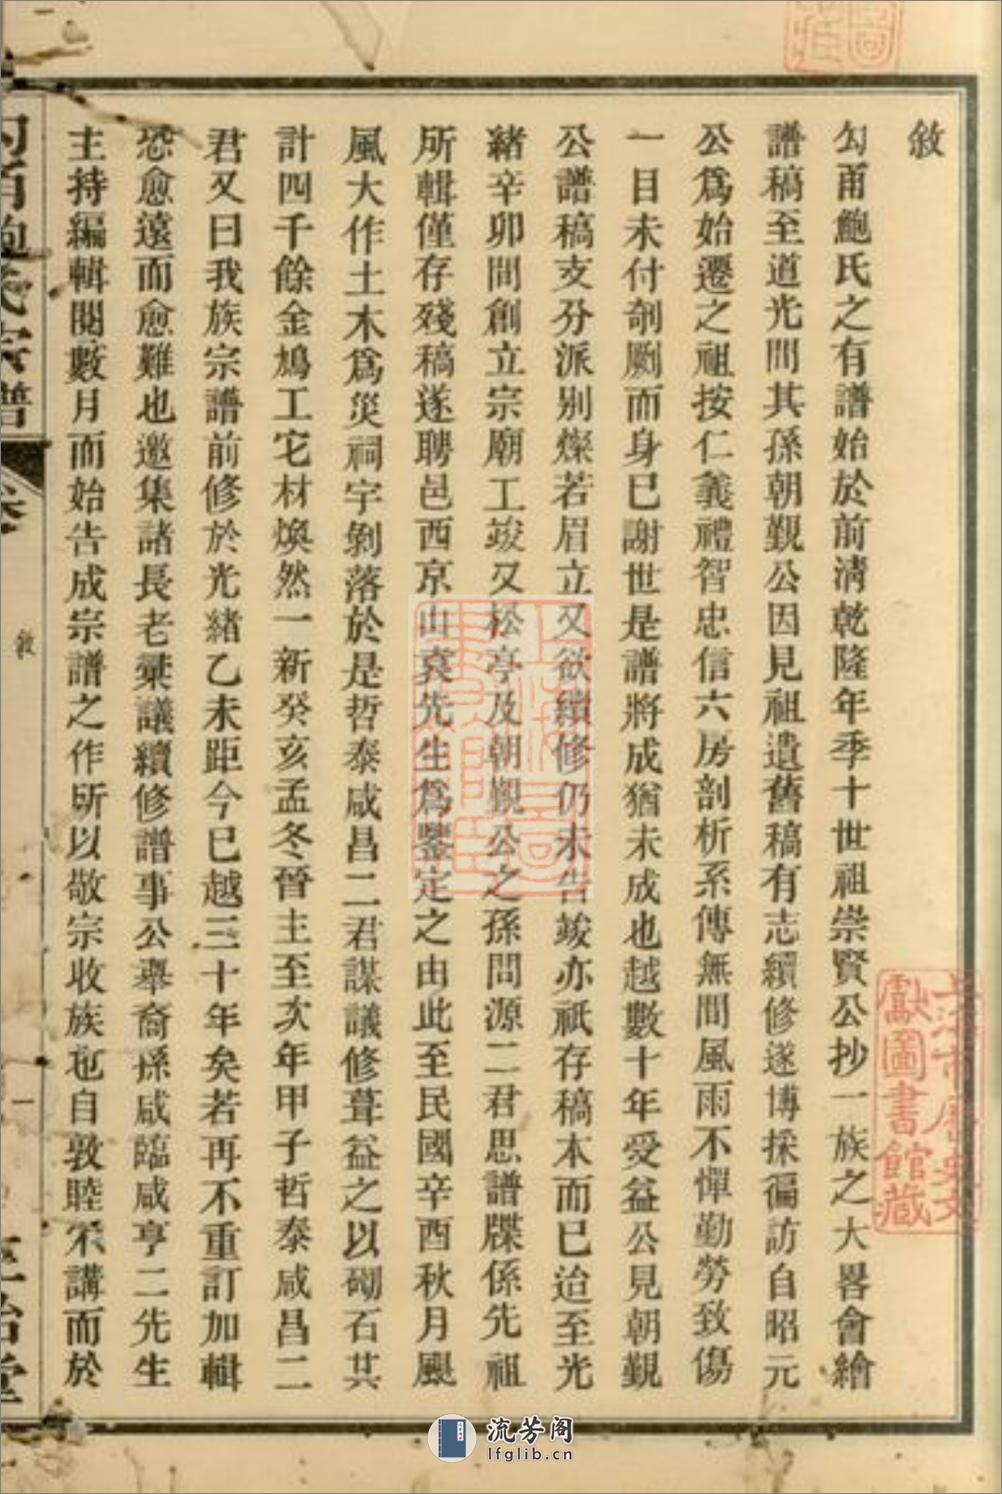 敘
勾甬鮑氏之有譜始於前淸乾隆年季十世祖崇賢公抄一族之大畧會繪
譜稿至道光間其孫朝覲公因見祖遺舊稿有志續修遂博採徧訪自昭元
公爲始遷之祖按仁義禮智忠信六房剖析系傳無間風雨不憚勤勞致傷
一目未付剞劂而身已謝世是譜將成猶未成也越數十年受益公見朝覲
公譜稿支分派別燦若眉立又欲續修仍未告竣亦祇存稿本而已迨至光
緖辛卯間創立宗廟工竣又松亭及朝覲公之孫問源二君思譜牒係先祖
所輯僅存殘稿遂聘邑西京山袁先生爲鑒定之由此至民國辛酉秋月颶
風大作土木爲災祠宇剝落於是哲泰咸昌二君謀議修葺益之以砌石共
計四千餘金鳩工它材煥然一新癸亥孟冬晉主至次年甲子哲泰咸昌二
君又曰我族宗譜前修於光緖乙未距今已越三十年矣若再不重訂加輯
恐愈遠而愈難也邀集諸長老棐議續修譜事公舉裔孫咸臨咸亨二先生
主持編輯閱數月而始告成宗譜之作所以敬宗收族也自敦睦不講而於
勾甬鮑氏宗譜
卷
敘
一
上海圖書館藏
獻圖書館藏
流芳阁
lfglib.cn